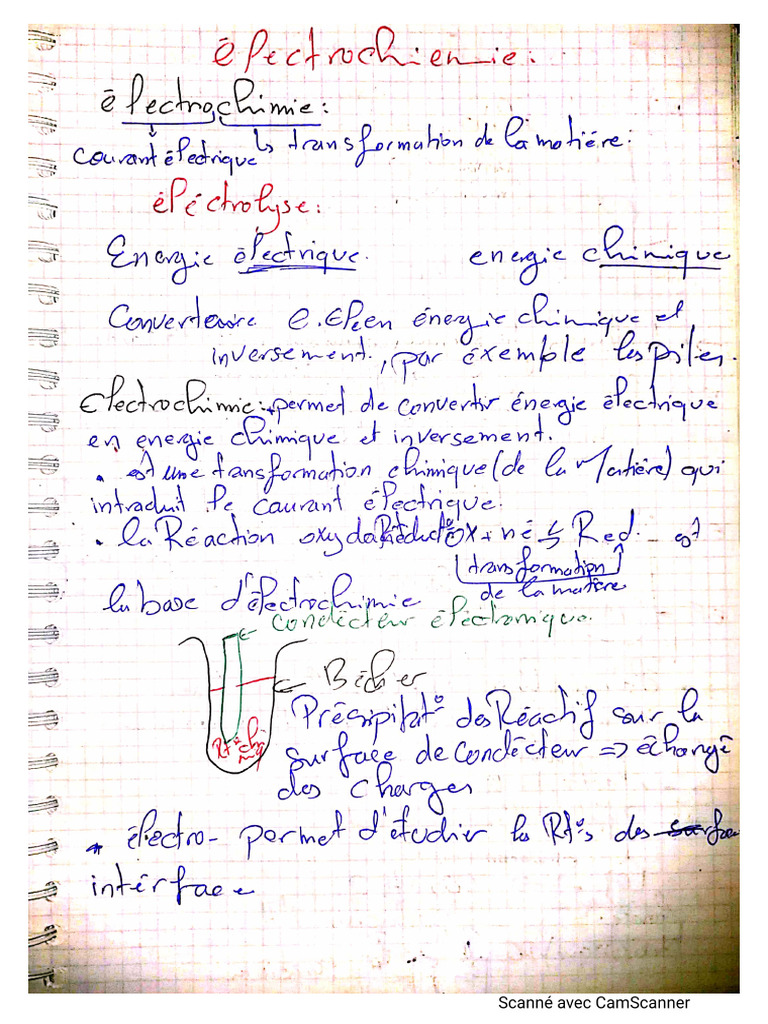 électrochiemie:
électrochimie:
courant électrique ↳ transformation de la matiére:
éléctrolyse:
Energie électrique. energie chimique
en énergie chimique et
inversement, par exemple les piles.
Electrochimie: permet de convertir énergie électrique
en energie chimique et inversement.
• est une transformation chimique (de la Matière) qui
intraduit le caurant électrique.
• la Réaction Ox + né ⇆ Red. est
transformation
de la matière
la base d'électrochimie
← condécteur éléctronique.
← Bécher
Précipitat° des Réactif sur la
Rt° chimiq
surface de condécteur ⇒ échangé
des charges
* électro- permet d'étudier les Rt°s des
interface
Scanné avec CamScanner